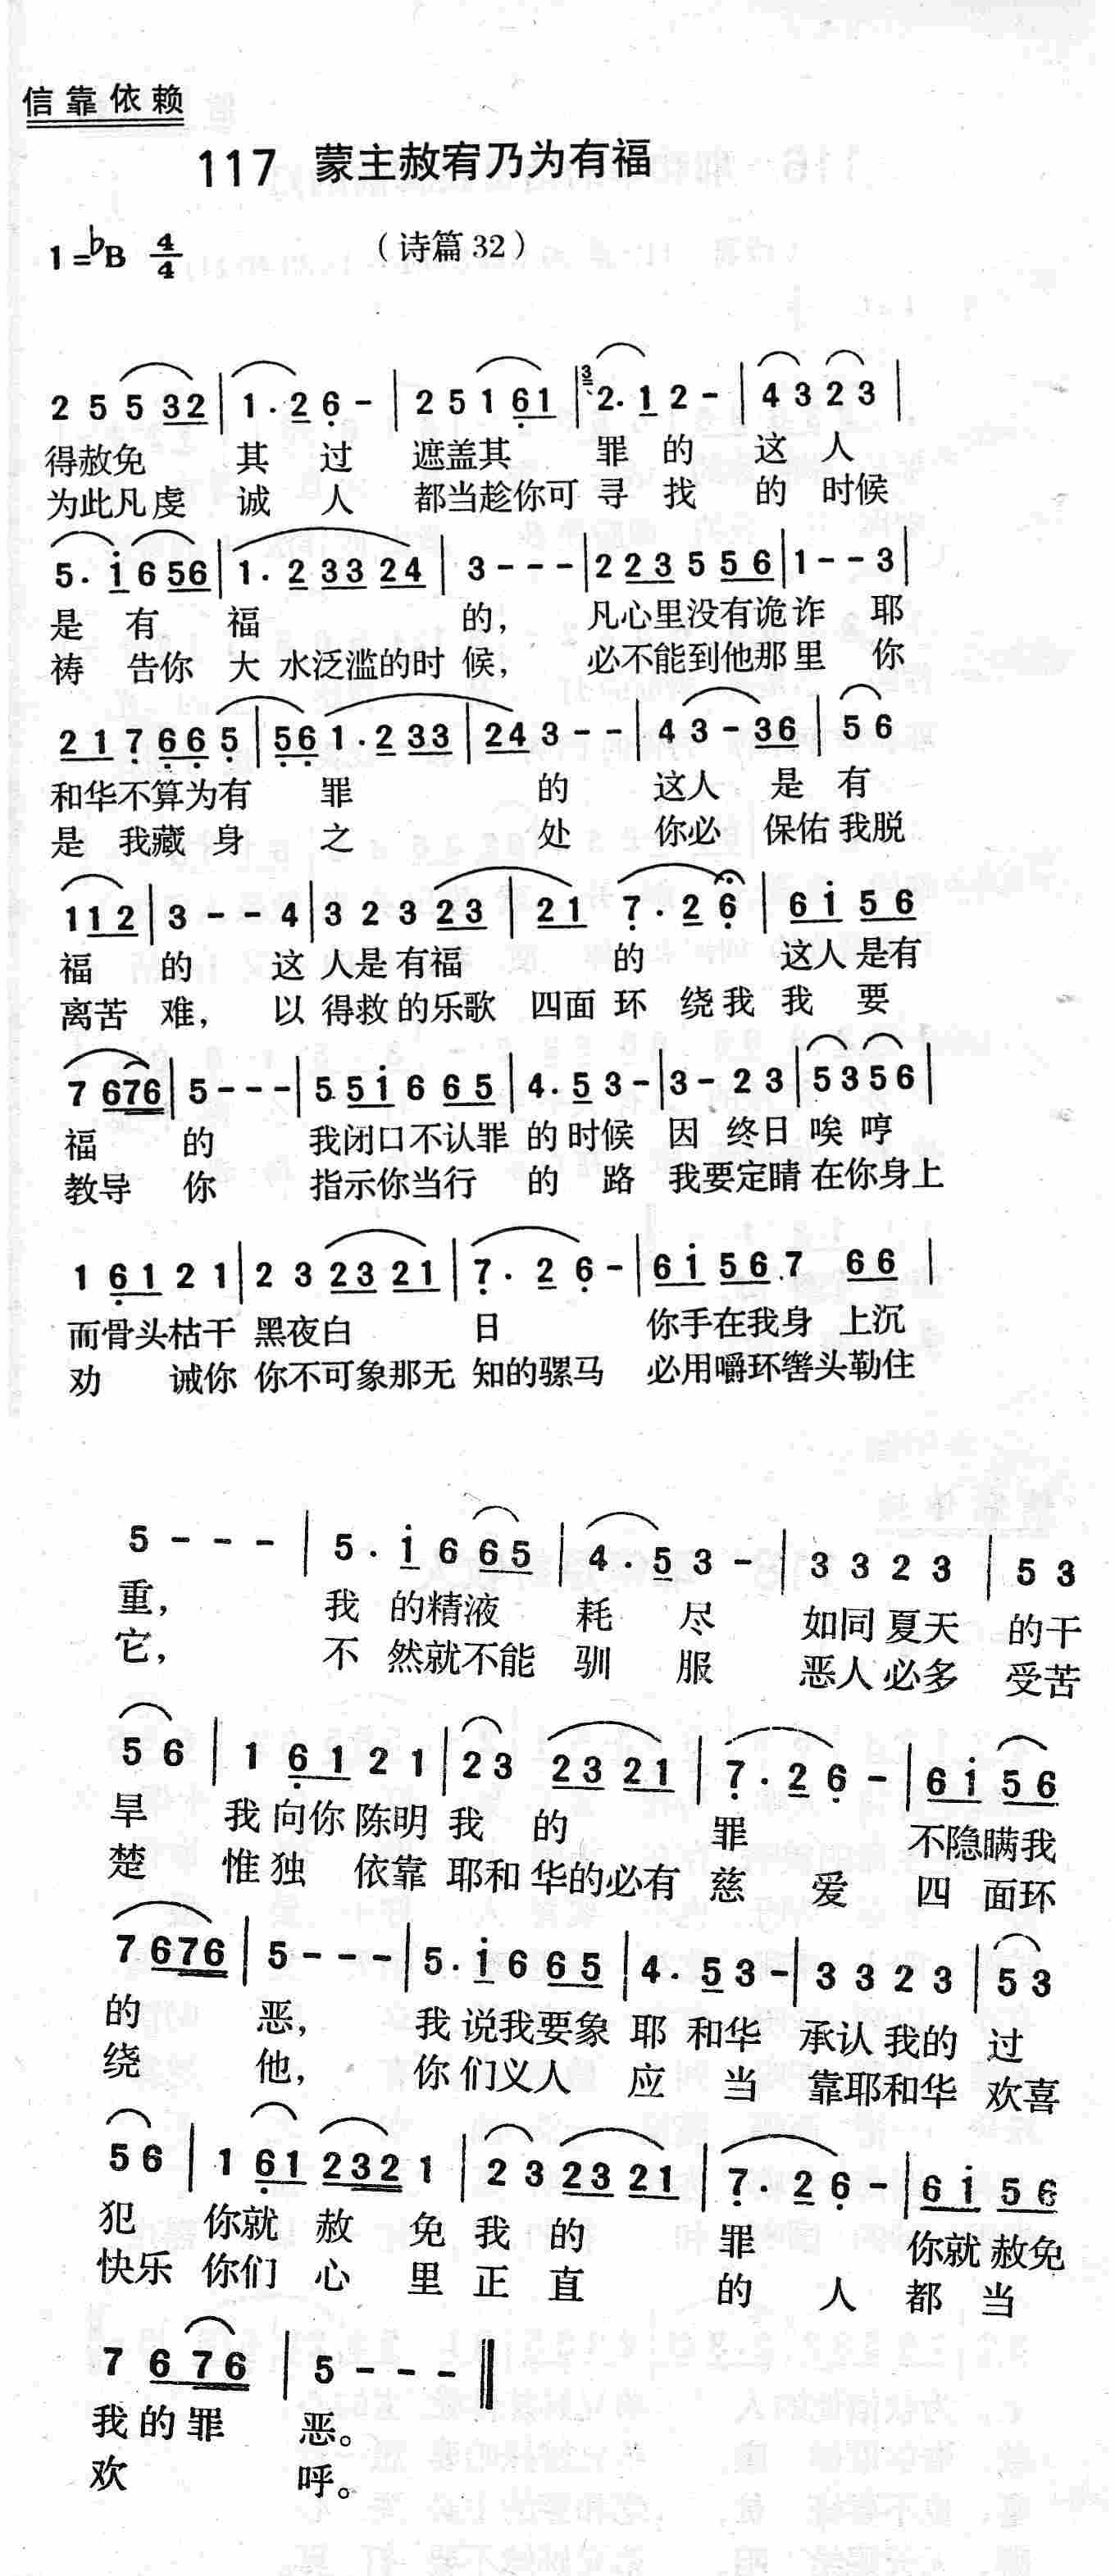 信靠依赖
117 蒙主赦宥乃为有福
1=♭B 4/4 (诗篇32)
2 5 5 32 | 1· 2 6 - | 2 5 1 61 | 3 2· 1 2 - | 4 3 2 3 |
得赦免 其 过 遮盖其 罪 的 这 人
为此凡虔 诚 人 都当趁你可 寻 找 的 时候
5· i 6 56 | 1· 2 33 24 | 3 - - - | 2 23 5 56 | 1 - - 3 |
是 有 福 的, 凡心里没有诡诈 耶
祷 告你 大 水泛滥的时 候, 必不能到他那里 你
21 7 66 5 | 56 1· 2 33 | 24 3 - - | 4 3 - 36 | 5 6
和华不算为有 罪 的 这人 是 有
是 我藏 身 之 处 你必 保佑我脱
1 12 | 3 - - 4 | 3 2 3 23 | 21 7· 2 6 | 6i 56
福 的 这 人是有福 的 这人是有
离苦 难, 以 得救的乐歌 四面 环 绕我 我 要
7 676 | 5 - - - | 5 5i 6 65 | 4· 5 3 - | 3 - 2 3 | 5 3 5 6 |
福 的 我闭口不认罪 的时候 因 终日 唉 哼
教导 你 指示你当行 的 路 我要定睛在你身上
1 61 2 1 | 2 3 23 21 | 7· 2 6 - | 6i 56 7 66 |
而骨头枯干 黑夜白 日 你手在我身 上沉
劝 诫你 你不可象那无 知的骡马 必用嚼环辔头勒住
5 - - - | 5· i 6 65 | 4· 5 3 - | 3 3 2 3 | 5 3
重, 我 的精液 耗 尽 如同夏天 的干
它, 不 然就不能 驯 服 恶人必多 受苦
5 6 | 1 61 2 1 | 2 3 23 21 | 7· 2 6 - | 6i 56
旱 我向你陈明 我 的 罪 不隐瞒我
楚 惟独 依靠 耶和华的必有 慈 爱 四 面环
7 676 | 5 - - - | 5· i 6 65 | 4· 5 3 - | 3 3 2 3 | 5 3
的 恶, 我 说我要象 耶 和华 承认我的 过
绕 他, 你们义人 应 当 靠耶和华 欢喜
5 6 | 1 61 232 1 | 2 3 23 21 | 7· 2 6 - | 6i 56
犯 你就 赦 免 我 的 罪 你就赦免
快乐 你们 心 里 正 直 的 人 都 当
7 676 | 5 - - - ‖
我的罪 恶。
欢 呼。